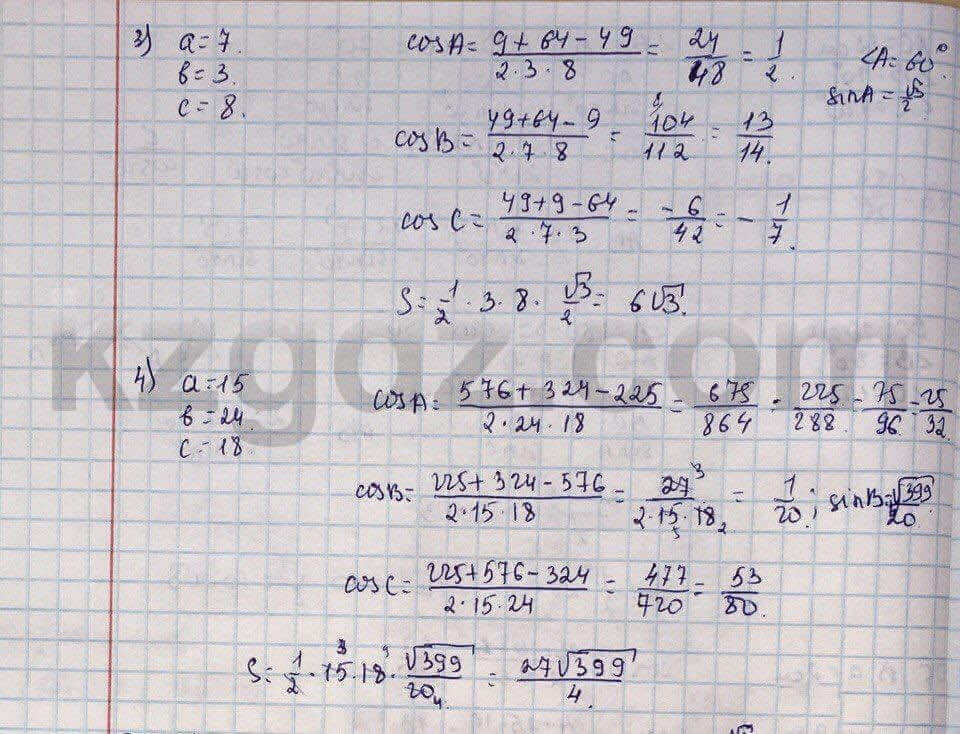 3) a=7.
b=3.
c=8.
cosA= (9+64-49)/(2·3·8) = 24/48 = 1/2.
<A=60°.
sinA=√3/2
cosB= (49+64-9)/(2·7·8) = 104/112 = 13/14.
cosC= (49+9-64)/(2·7·3) = -6/42 = -1/7.
S=1/2·3·8·√3/2= 6√3.
kzgdz.com
4) a=15
b=24.
c=18.
cosA= (576+324-225)/(2·24·18) = 675/864 = 225/288 = 75/96 = 25/32
cosB= (225+324-576)/(2·15·18) = 27/(2·15·18) = 1/20; sinB=√399/20
cosC= (225+576-324)/(2·15·24) = 477/720 = 53/80.
S=1/2·15·18·√399/20 = 27√399/4.